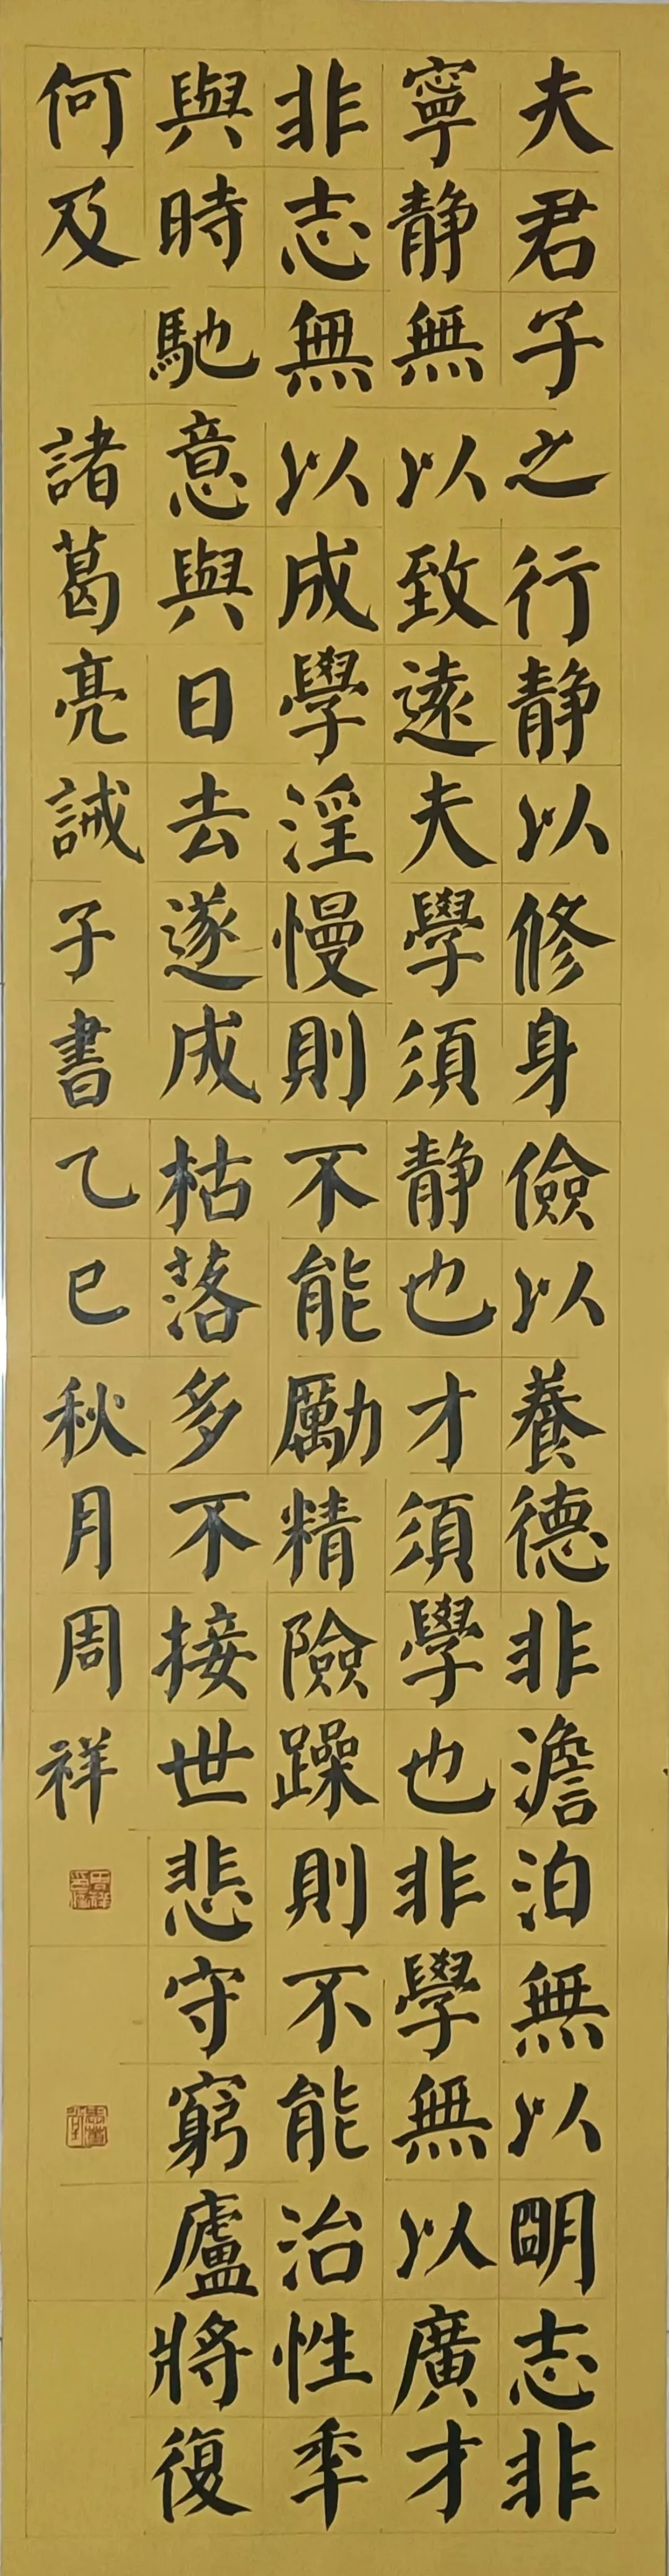 夫君子之行静以修身儉以養德非澹泊無以明志非
寧静無以致遠夫學須静也才須學也非學無以廣才
非志無以成學淫慢則不能勵精險躁則不能治性年
與時馳意與日去遂成枯落多不接世悲守窮廬將復
何及
諸葛亮誡子書乙巳秋月周祥